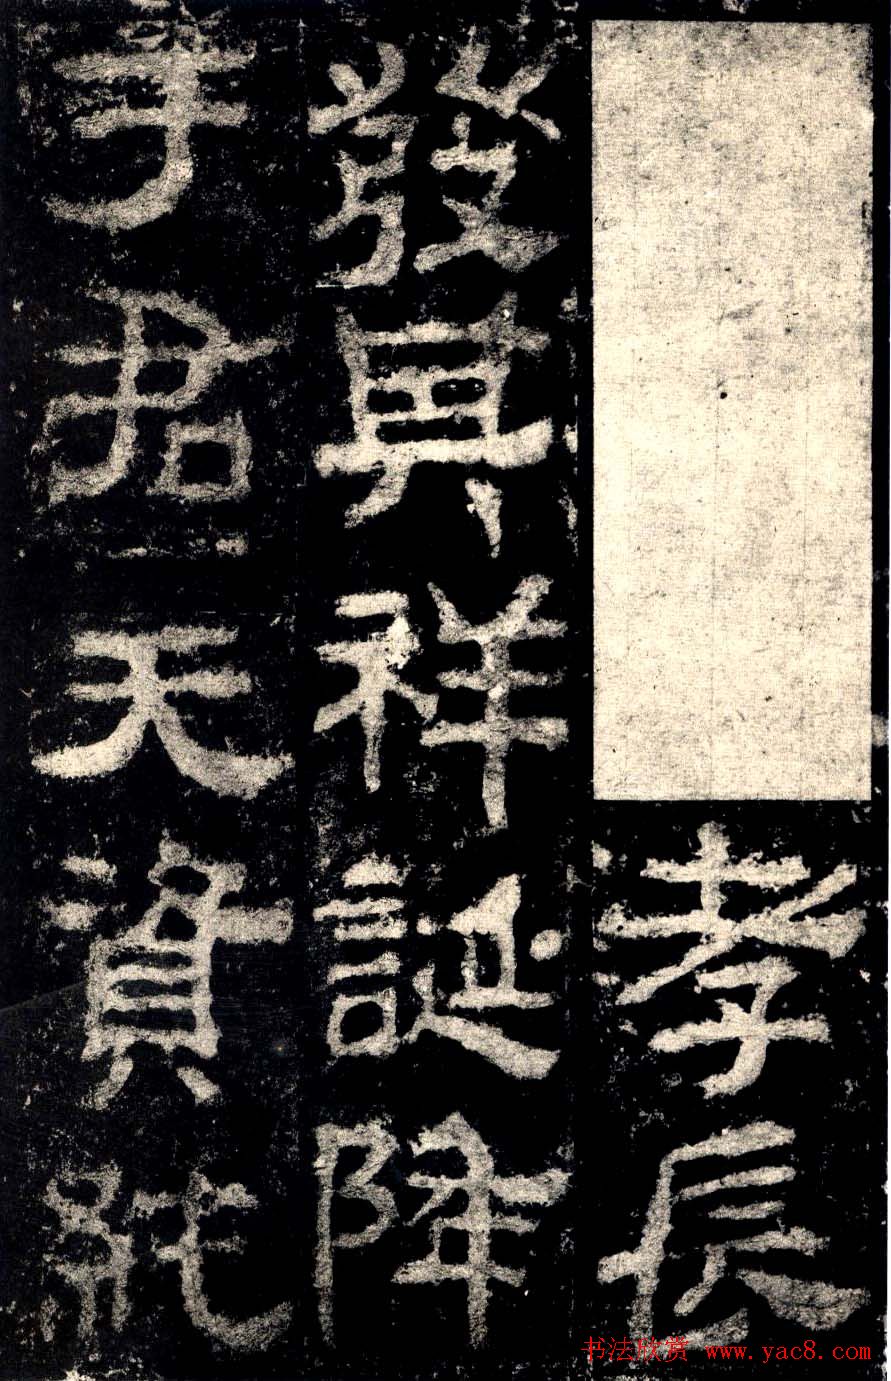 孝長
發其祥誕降
于君天資純
书法欣赏 www.yac8.com